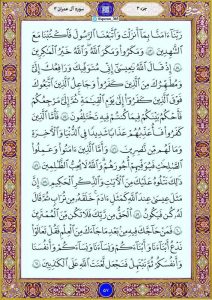 جزء ٣
سورة آل عمران ٣
رَبَّنَا ءَامَنَّا بِمَا أَنزَلْتَ وَاتَّبَعْنَا الرَّسُولَ فَاكْتُبْنَا مَعَ
الشَّاهِدِينَ ۝ وَمَكَرُوا وَمَكَرَ اللَّهُ وَاللَّهُ خَيْرُ الْمَاكِرِينَ
۝ إِذْ قَالَ اللَّهُ يَاعِيسَى إِنِّي مُتَوَفِّيكَ وَرَافِعُكَ إِلَيَّ
وَمُطَهِّرُكَ مِنَ الَّذِينَ كَفَرُوا وَجَاعِلُ الَّذِينَ اتَّبَعُوكَ
فَوْقَ الَّذِينَ كَفَرُوا إِلَى يَوْمِ الْقِيَامَةِ ثُمَّ إِلَيَّ مَرْجِعُكُمْ
فَأَحْكُمُ بَيْنَكُمْ فِيمَا كُنتُمْ فِيهِ تَخْتَلِفُونَ ۝ فَأَمَّا الَّذِينَ
كَفَرُوا فَأُعَذِّبُهُمْ عَذَابًا شَدِيدًا فِي الدُّنْيَا وَالْآخِرَةِ
وَمَا لَهُم مِّن نَّاصِرِينَ ۝ وَأَمَّا الَّذِينَ ءَامَنُوا وَعَمِلُوا
الصَّالِحَاتِ فَيُوَفِّيهِمْ أُجُورَهُمْ وَاللَّهُ لَا يُحِبُّ الظَّالِمِينَ ۝
ذَلِكَ نَتْلُوهُ عَلَيْكَ مِنَ الْآيَاتِ وَالذِّكْرِ الْحَكِيمِ ۝ إِنَّ
مَثَلَ عِيسَى عِندَ اللَّهِ كَمَثَلِ ءَادَمَ خَلَقَهُ مِن تُرَابٍ ثُمَّ قَالَ
لَهُ كُن فَيَكُونُ ۝ الْحَقُّ مِن رَّبِّكَ فَلَا تَكُن مِّنَ الْمُمْتَرِينَ
۝ فَمَنْ حَاجَّكَ فِيهِ مِن بَعْدِ مَا جَاءَكَ مِنَ الْعِلْمِ فَقُلْ تَعَالَوْا
نَدْعُ أَبْنَاءَنَا وَأَبْنَاءَكُمْ وَنِسَاءَنَا وَنِسَاءَكُمْ وَأَنفُسَنَا
وَأَنفُسَكُمْ ثُمَّ نَبْتَهِلْ فَنَجْعَل لَّعْنَتَ اللَّهِ عَلَى الْكَاذِبِينَ ۝
٥٧